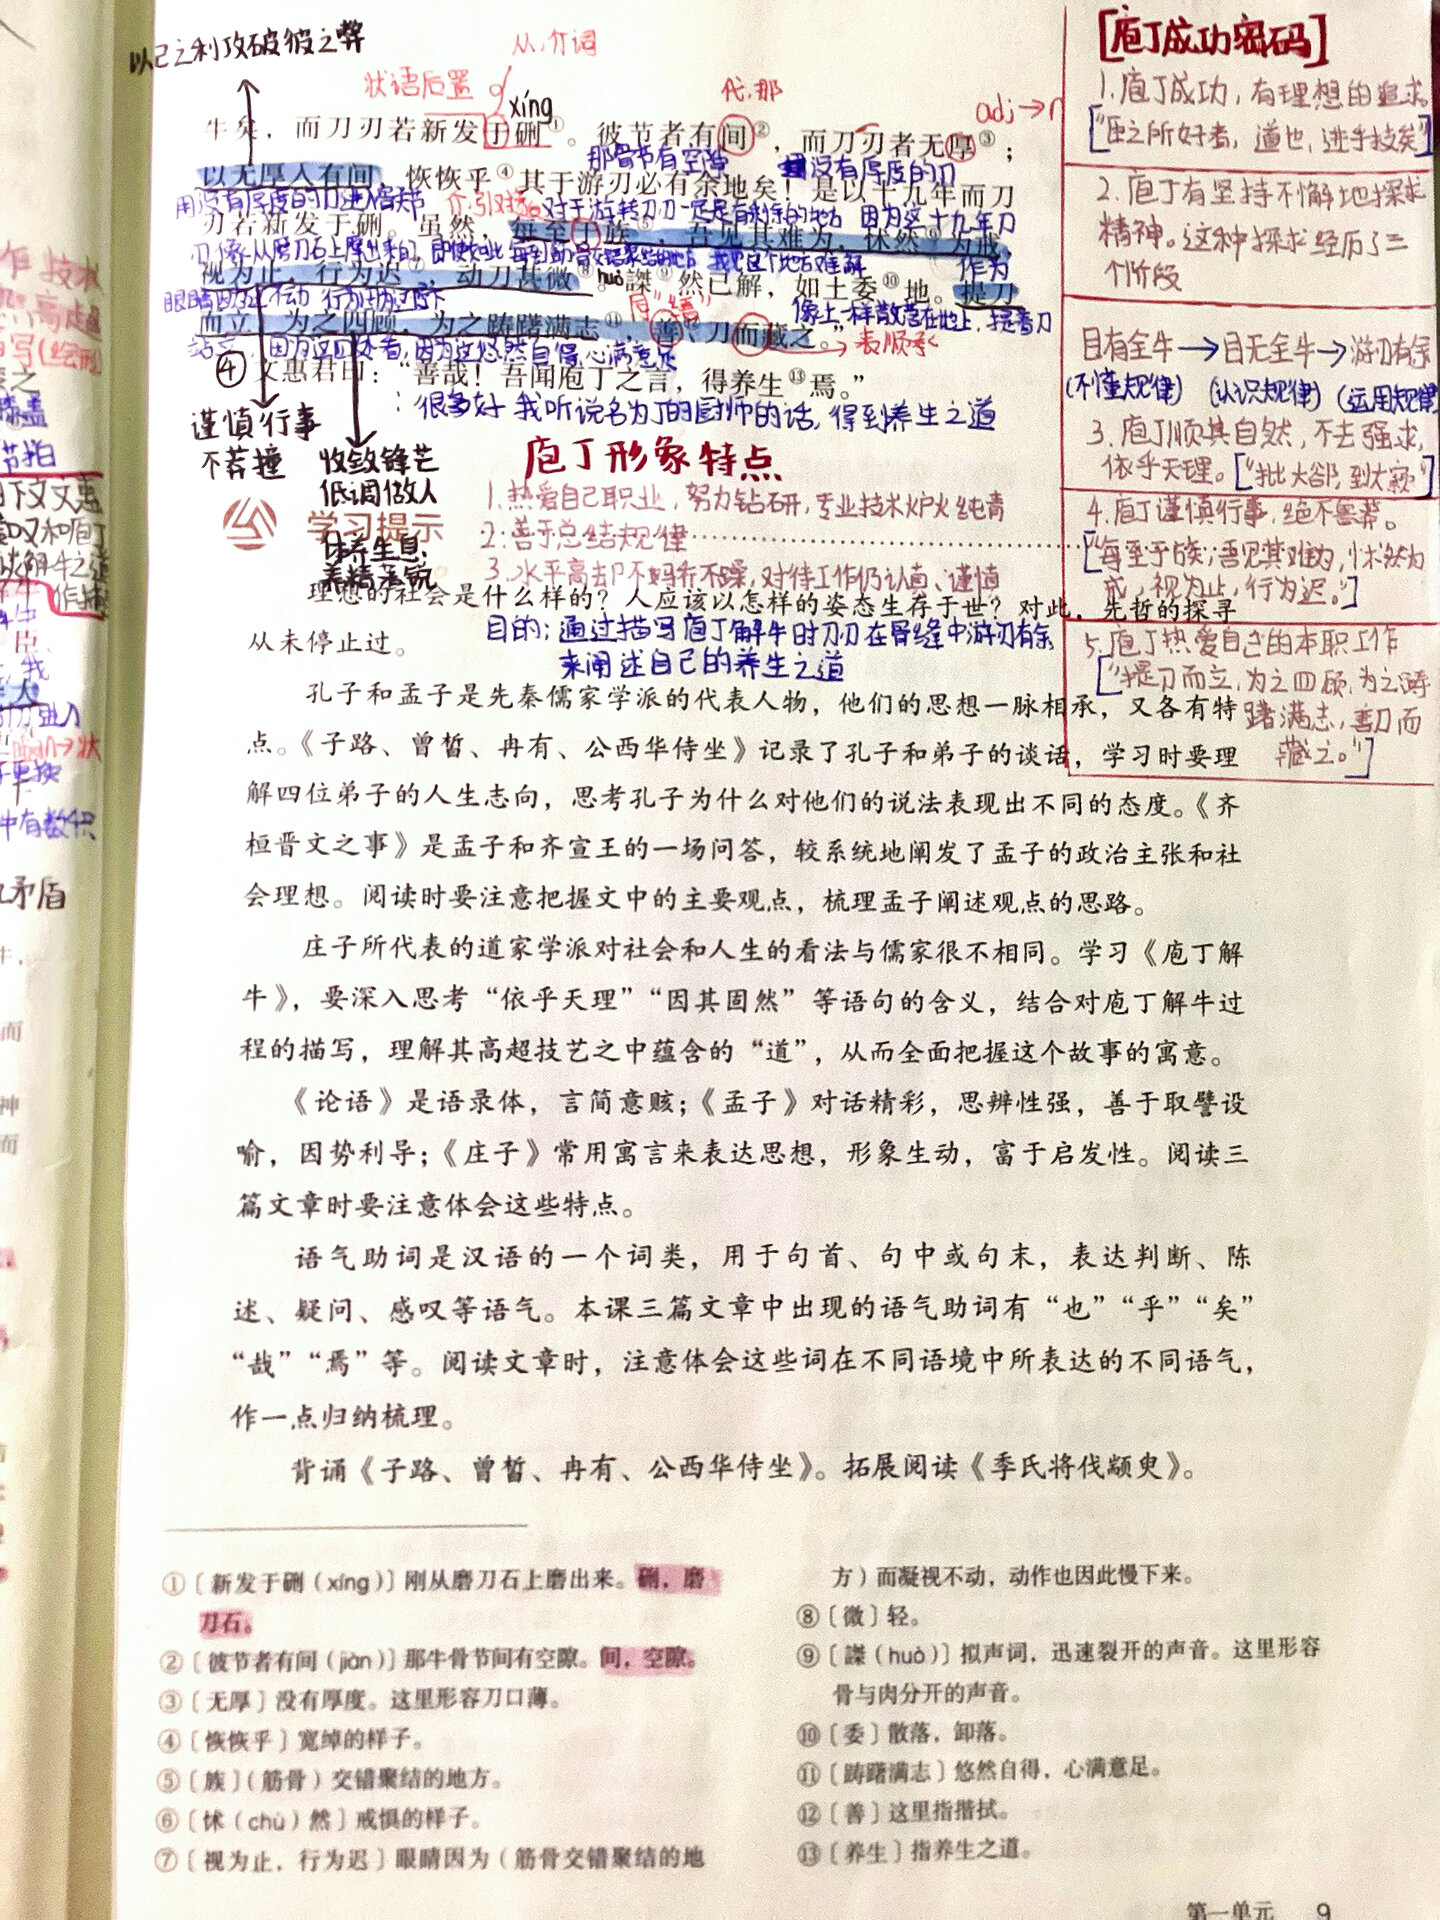 以己之利攻破彼之弊
从，介词
状语后置
xíng
代，那
adj→n
牛矣，而刀刃若新发于硎①。彼节者有间②，而刀刃者无厚③；
那骨节有空隙
没有厚度的刀
以无厚入有间，恢恢乎④其于游刃必有余地矣！是以十九年而刀
用没有厚度的刀进入骨节
对于游转刀刃一定是有剩余的地方 因为这十九年刀
刃若新发于硎。虽然，每至于族⑤，吾见其难为，怵然⑥为戒，
作为
视为止，行为迟⑦，动刀甚微⑧。謋⑨然已解，如土委⑩地。提刀
huò
像土一样散落在地上，提着刀
而立，为之四顾，为之踌躇满志⑪，善⑫刀而藏之。”
表顺承
④文惠君曰：“善哉！吾闻庖丁之言，得养生⑬焉。”
：很多好 我听说名为丁的厨师的话，得到养生之道
谨慎行事
不莽撞
收敛锋芒
低调做人
休养生息，
养精蓄锐
庖丁形象特点
1.热爱自己职业，努力钻研，专业技术炉火纯青
2.善于总结规律
3.水平高却不妈乔不躁，对待工作仍认真、谨慎
目的：通过描写庖丁解牛时刀刃在骨缝中游刃有余
来阐述自己的养生之道
[庖丁成功密码]
1.庖丁成功，有理想的追求。
[“臣之所好者，道也，进乎技矣”]
2.庖丁有坚持不懈地探求
精神。这种探求经历了三
个阶段
目有全牛→目无全牛→游刃有余
(不懂规律) (认识规律) (运用规律)
3.庖丁顺其自然，不去强求，
依乎天理。[“批大郤，到大窾”]
4.庖丁谨慎行事，绝不鲁莽。
[“每至于族，吾见其难为，怵然为
戒，视为止，行为迟。”]
5.庖丁热爱自己的本职工作
[“提刀而立，为之四顾，为之踌
躇满志，善刀而
藏之。”]
学习提示
理想的社会是什么样的？人应该以怎样的姿态生存于世？对此，先哲的探寻
从未停止过。
孔子和孟子是先秦儒家学派的代表人物，他们的思想一脉相承，又各有特
点。《子路、曾皙、冉有、公西华侍坐》记录了孔子和弟子的谈话，学习时要理
解四位弟子的人生志向，思考孔子为什么对他们的说法表现出不同的态度。《齐
桓晋文之事》是孟子和齐宣王的一场问答，较系统地阐发了孟子的政治主张和社
会理想。阅读时要注意把握文中的主要观点，梳理孟子阐述观点的思路。
庄子所代表的道家学派对社会和人生的看法与儒家很不相同。学习《庖丁解
牛》，要深入思考“依乎天理”“因其固然”等语句的含义，结合对庖丁解牛过
程的描写，理解其高超技艺之中蕴含的“道”，从而全面把握这个故事的寓意。
《论语》是语录体，言简意赅；《孟子》对话精彩，思辨性强，善于取譬设
喻，因势利导；《庄子》常用寓言来表达思想，形象生动，富于启发性。阅读三
篇文章时要注意体会这些特点。
语气助词是汉语的一个词类，用于句首、句中或句末，表达判断、陈
述、疑问、感叹等语气。本课三篇文章中出现的语气助词有“也”“乎”“矣”
“哉”“焉”等。阅读文章时，注意体会这些词在不同语境中所表达的不同语气，
作一点归纳梳理。
背诵《子路、曾皙、冉有、公西华侍坐》。拓展阅读《季氏将伐颛臾》。
①〔新发于硎（xíng）〕刚从磨刀石上磨出来。硎，磨
刀石。
②〔彼节者有间（jiàn）〕那牛骨节间有空隙。间，空隙。
③〔无厚〕没有厚度。这里形容刀口薄。
④〔恢恢乎〕宽绰的样子。
⑤〔族〕（筋骨）交错聚结的地方。
⑥〔怵（chù）然〕戒惧的样子。
⑦〔视为止，行为迟〕眼睛因为（筋骨交错聚结的地
方）而凝视不动，动作也因此慢下来。
⑧〔微〕轻。
⑨〔謋（huò）〕拟声词，迅速裂开的声音。这里形容
骨与肉分开的声音。
⑩〔委〕散落，卸落。
⑪〔踌躇满志〕悠然自得，心满意足。
⑫〔善〕这里指揩拭。
⑬〔养生〕指养生之道。
第一单元 9